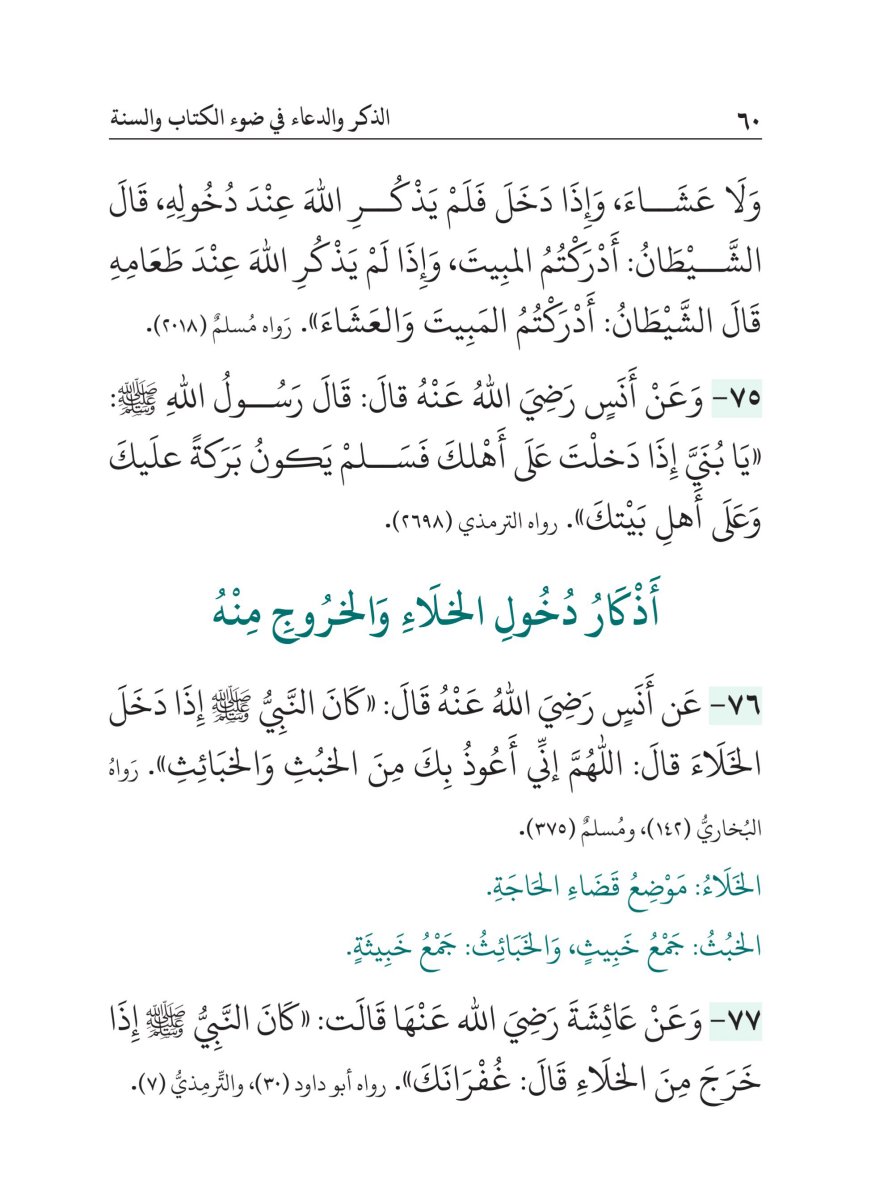 ٦٠ الذكر والدعاء في ضوء الكتاب والسنة
وَلَا عَشَـــاءَ، وَإِذَا دَخَلَ فَلَمْ يَذْكُـــرِ اللهَ عِنْدَ دُخُولِهِ، قَالَ
الشَّـــيْطَانُ: أَدْرَكْتُمُ المبِيتَ، وَإِذَا لَمْ يَذْكُرِ اللهَ عِنْدَ طَعَامِهِ
قَالَ الشَّيْطَانُ: أَدْرَكْتُمُ المَبِيتَ وَالعَشَاءَ». رَواه مُسلمٌ (٢٠١٨).
٧٥- وَعَنْ أَنَسٍ رَضِيَ اللهُ عَنْهُ قالَ: قَالَ رَسُـــولُ اللهِ ﷺ:
«يَا بُنَيَّ إِذَا دَخلْتَ عَلَى أَهْلكَ فَسَـــلمْ يَكونُ بَرَكةً علَيكَ
وَعَلَى أَهلِ بَيْتكَ». رواه الترمذي (٢٦٩٨).
أَذْكَارُ دُخُولِ الخلَاءِ وَالخرُوجِ مِنْهُ
٧٦- عَن أَنَسٍ رَضِيَ اللهُ عَنْهُ قَالَ: «كَانَ النَّبِيُّ ﷺ إِذَا دَخَلَ
الخَلَاءَ قالَ: اللَّهُمَّ إنِّي أَعُوذُ بِكَ مِنَ الخبُثِ وَالخبَائِثِ». رَواهُ
البُخاريُّ (١٤٢)، ومُسلمٌ (٣٧٥).
الخَلَاءُ: مَوْضِعُ قَضَاءِ الحَاجَةِ.
الخبُثُ: جَمْعُ خَبِيثٍ، وَالخَبَائِثُ: جَمْعُ خَبِيثَةٍ.
٧٧- وَعَنْ عَائِشَةَ رَضِيَ الله عَنْهَا قَالَت: «كَانَ النَّبِيُّ ﷺ إِذَا
خَرَجَ مِنَ الخلَاءِ قَالَ: غُفْرَانَكَ». رواه أبو داود (٣٠)، والتِّرمِذيُّ (٧).